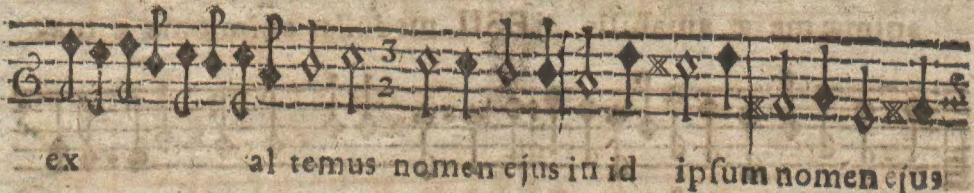 3
2
ex al temus nomen ejus in id ipſum nomen ejus